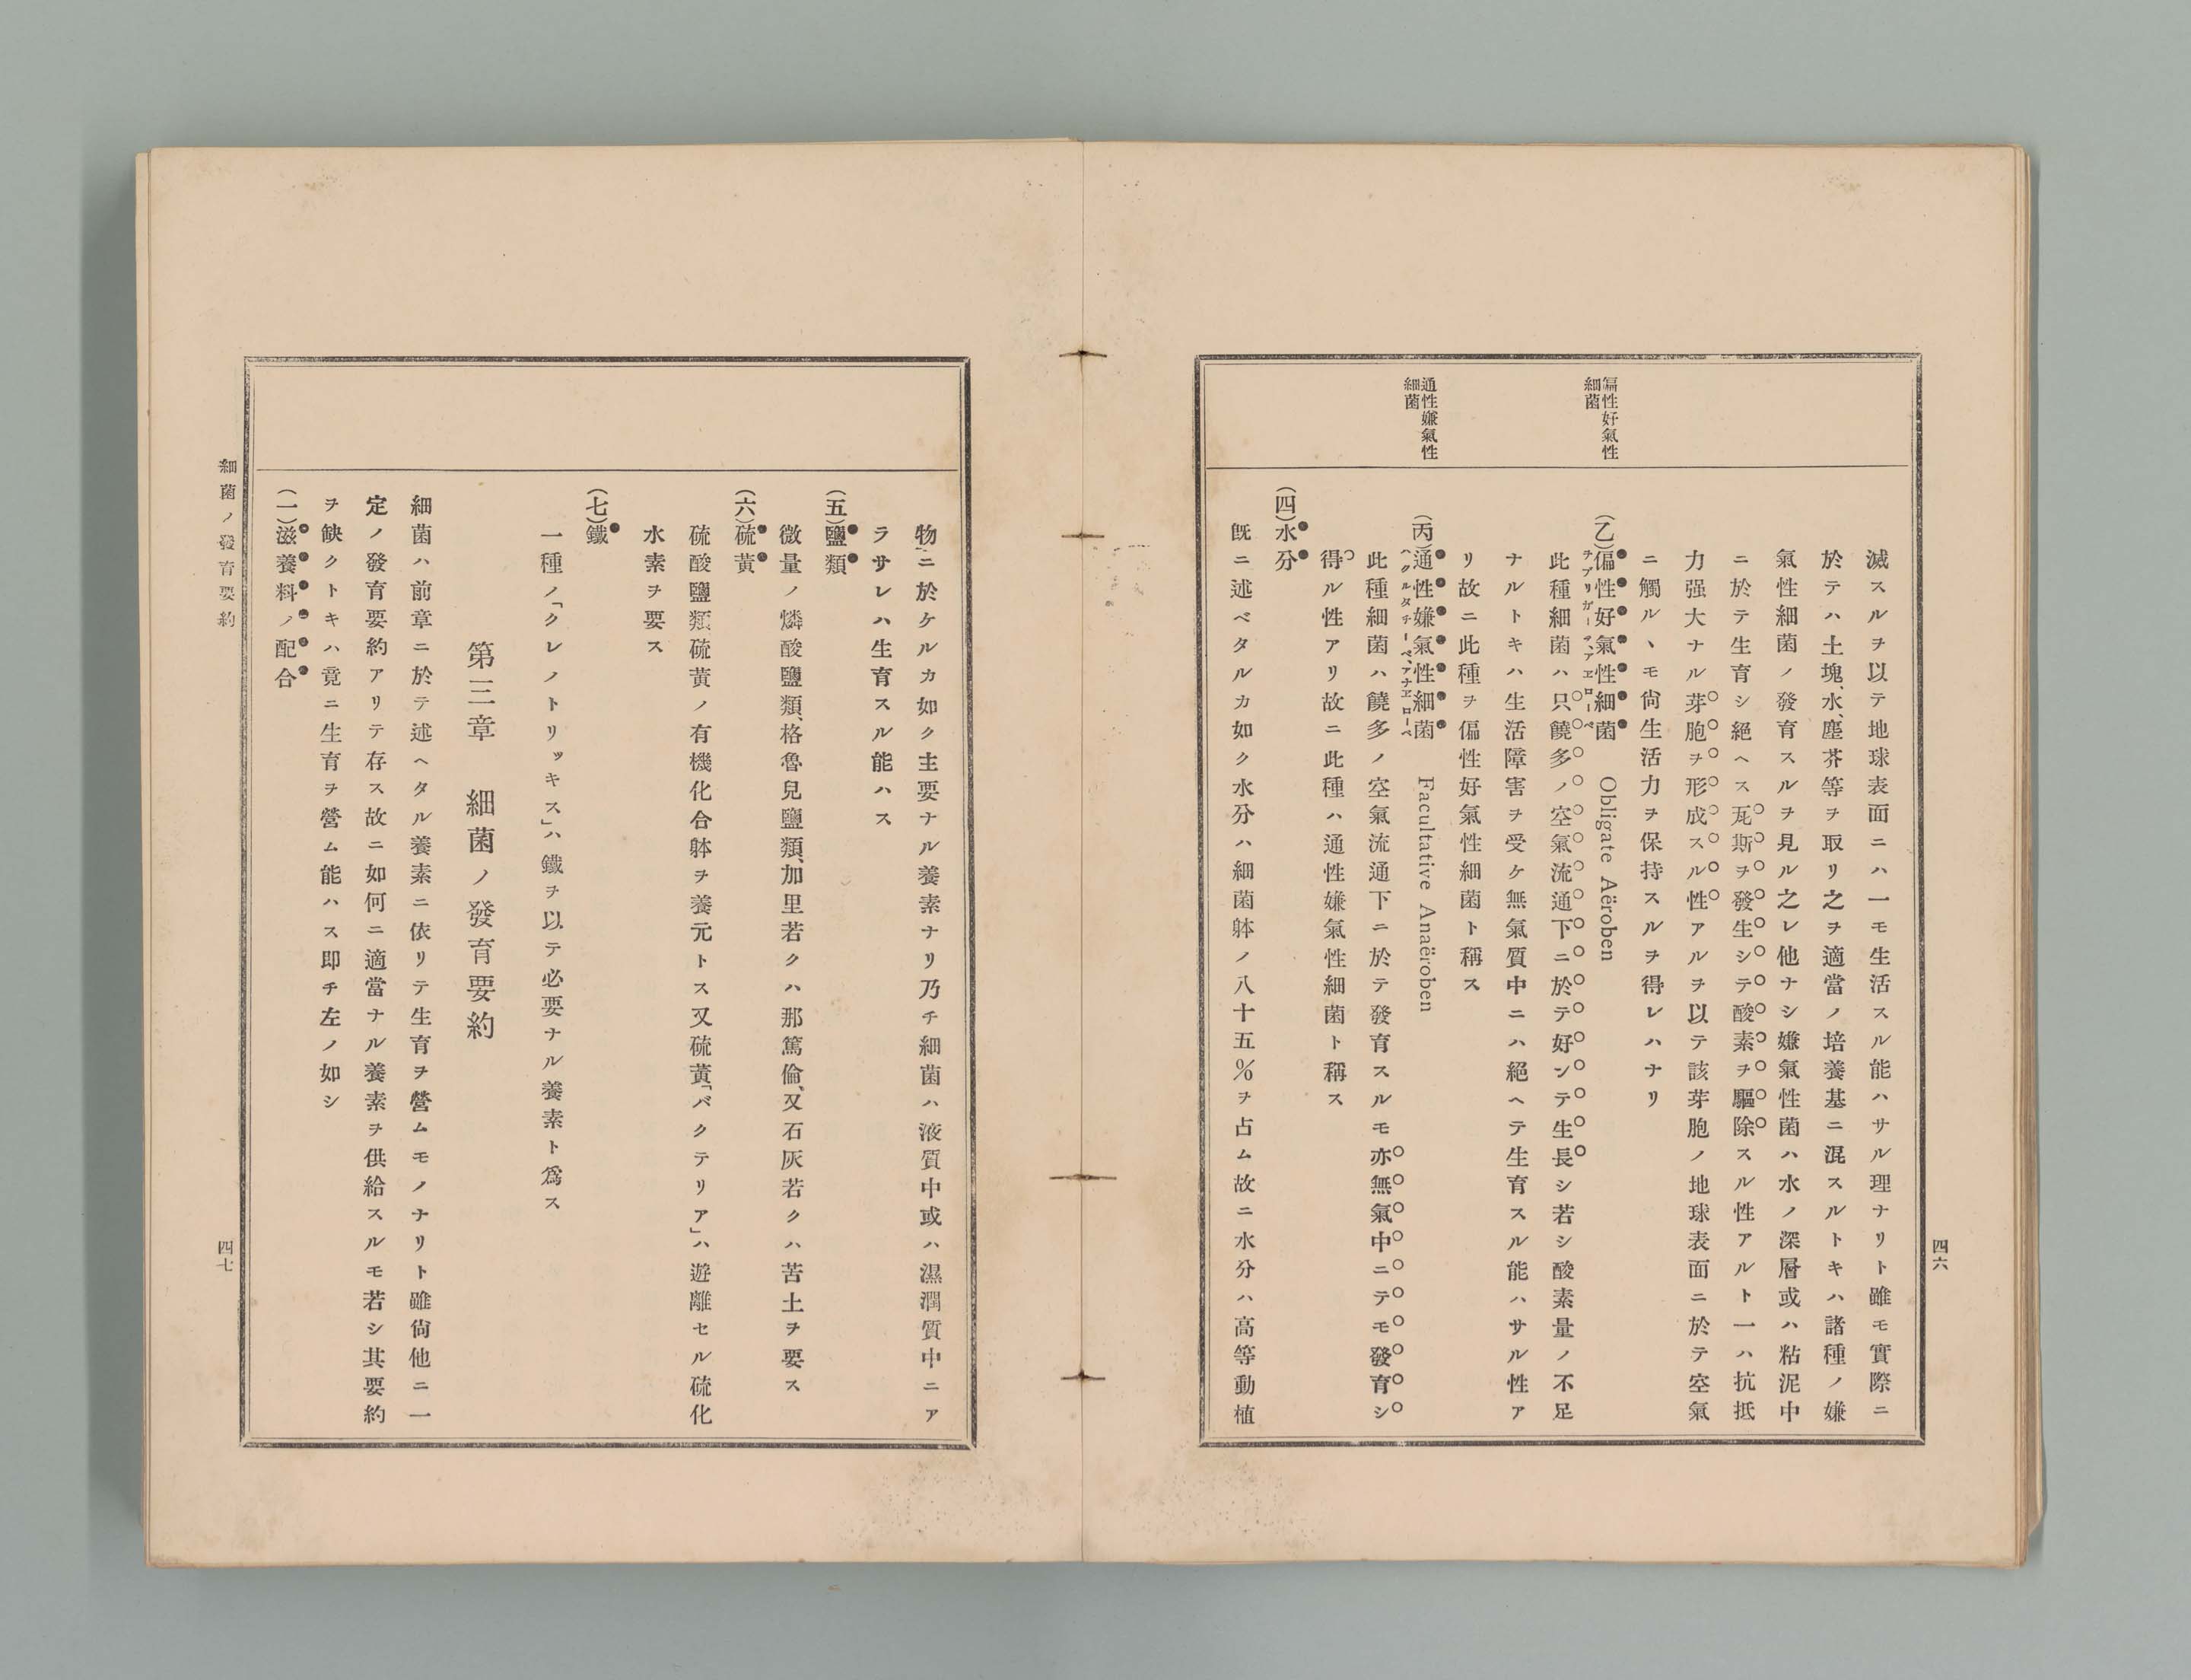 滅スルヲ以テ地球表面ニハ一モ生活スル能ハサル理ナリト雖モ實際ニ
於テハ土塊、水、塵芥等ヲ取リ之ヲ適當ノ培養基ニ混スルトキハ諸種ノ嫌
氣性細菌ノ發育スルヲ見ル之レ他ナシ嫌氣性菌ハ水ノ深層或ハ粘泥中
ニ於テ生育シ絕ヘス瓦斯ヲ發生シテ酸素ヲ驅除スル性アルト一ハ抗抵
力强大ナル芽胞ヲ形成スル性アルヲ以テ該芽胞ノ地球表面ニ於テ空氣
ニ觸ルヽモ尙生活力ヲ保持スルヲ得レハナリ
偏性好氣性
細菌
(乙)偏性好氣性細菌 Obligate Aëroben
ヲブリガーテ、アエローベ
此種細菌ハ只饒多ノ空氣流通下ニ於テ好ンテ生長シ若シ酸素量ノ不足
ナルトキハ生活障害ヲ受ケ無氣質中ニハ絕ヘテ生育スル能ハサル性ア
リ故ニ此種ヲ偏性好氣性細菌ト稱ス
通性嫌氣性
細菌
(丙)通性嫌氣性細菌 Facultative Anaëroben
ハクルタチーベ、アナエローベ
此種細菌ハ饒多ノ空氣流通下ニ於テ發育スルモ亦無氣中ニテモ發育シ
得ル性アリ故ニ此種ハ通性嫌氣性細菌ト稱ス
(四)水分
旣ニ述ベタルカ如ク水分ハ細菌躰ノ八十五%ヲ占ム故ニ水分ハ高等動植
四六
物ニ於ケルカ如ク主要ナル養素ナリ乃チ細菌ハ液質中或ハ濕潤質中ニア
ラサレハ生育スル能ハス
(五)鹽類
微量ノ燐酸鹽類、格魯兒鹽類、加里若クハ那篤倫、又石灰若クハ苦土ヲ要ス
(六)硫黃
硫酸鹽類硫黃ノ有機化合躰ヲ養元トス又硫黃「バクテリア」ハ遊離セル硫化
水素ヲ要ス
(七)鐵
一種ノ「クレノトリッキス」ハ鐵ヲ以テ必要ナル養素ト爲ス
第三章 細菌ノ發育要約
細菌ハ前章ニ於テ述ヘタル養素ニ依リテ生育ヲ營ムモノナリト雖尙他ニ一
定ノ發育要約アリテ存ス故ニ如何ニ適當ナル養素ヲ供給スルモ若シ其要約
ヲ缺クトキハ竟ニ生育ヲ營ム能ハス卽チ左ノ如シ
(一)滋養料ノ配合
細菌ノ發育要約
四七